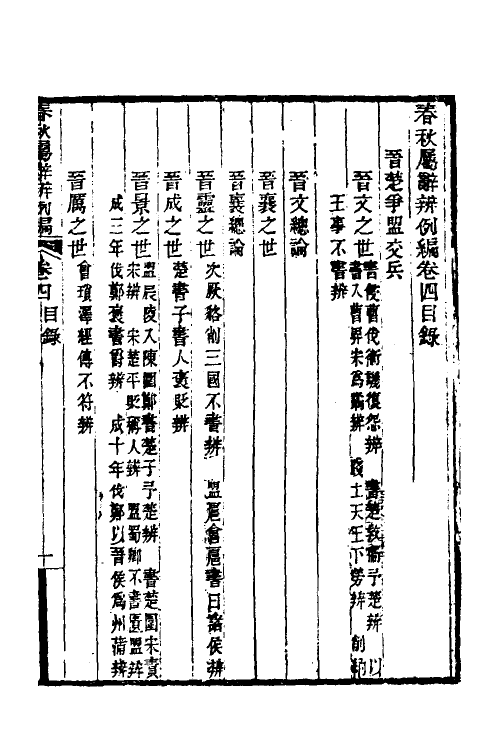 春秋屬辭辨例編卷四目錄
晉楚爭盟交兵
晉文之世
書侵曹伐衛譏復怨辨　書楚救衛予楚辨　以
書入曹畀宋為譎辨　踐土天王下勞辨　削
王事不書辨
晉文總論
晉襄之世
晉襄總論
晉靈之世
次厥貉削三國不書辨　盟扈會扈書曰諸侯辨
晉成之世
楚書子書人褒貶辨
晉景之世
盟辰陵入陳圍鄭書楚子予楚辨　書楚圍宋責
宋辨　宋楚平貶稱人辨　盟蜀卿不書匱盟辨
成三年伐鄭褒書爵辨　成十年伐鄭以晉侯為州蒲辨
晉厲之世
會瑣澤經傳不符辨
春秋屬辭辨例編
卷四目錄
一